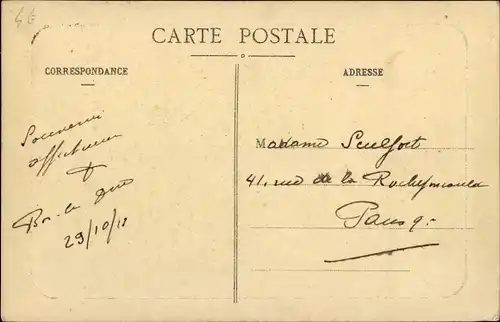 CARTE POSTALE
CORRESPONDANCE
ADRESSE
Souvenir
affectueux
Madame Sculfort
41, rue de la Rochefoucauld
Paris 9e
29/10/18